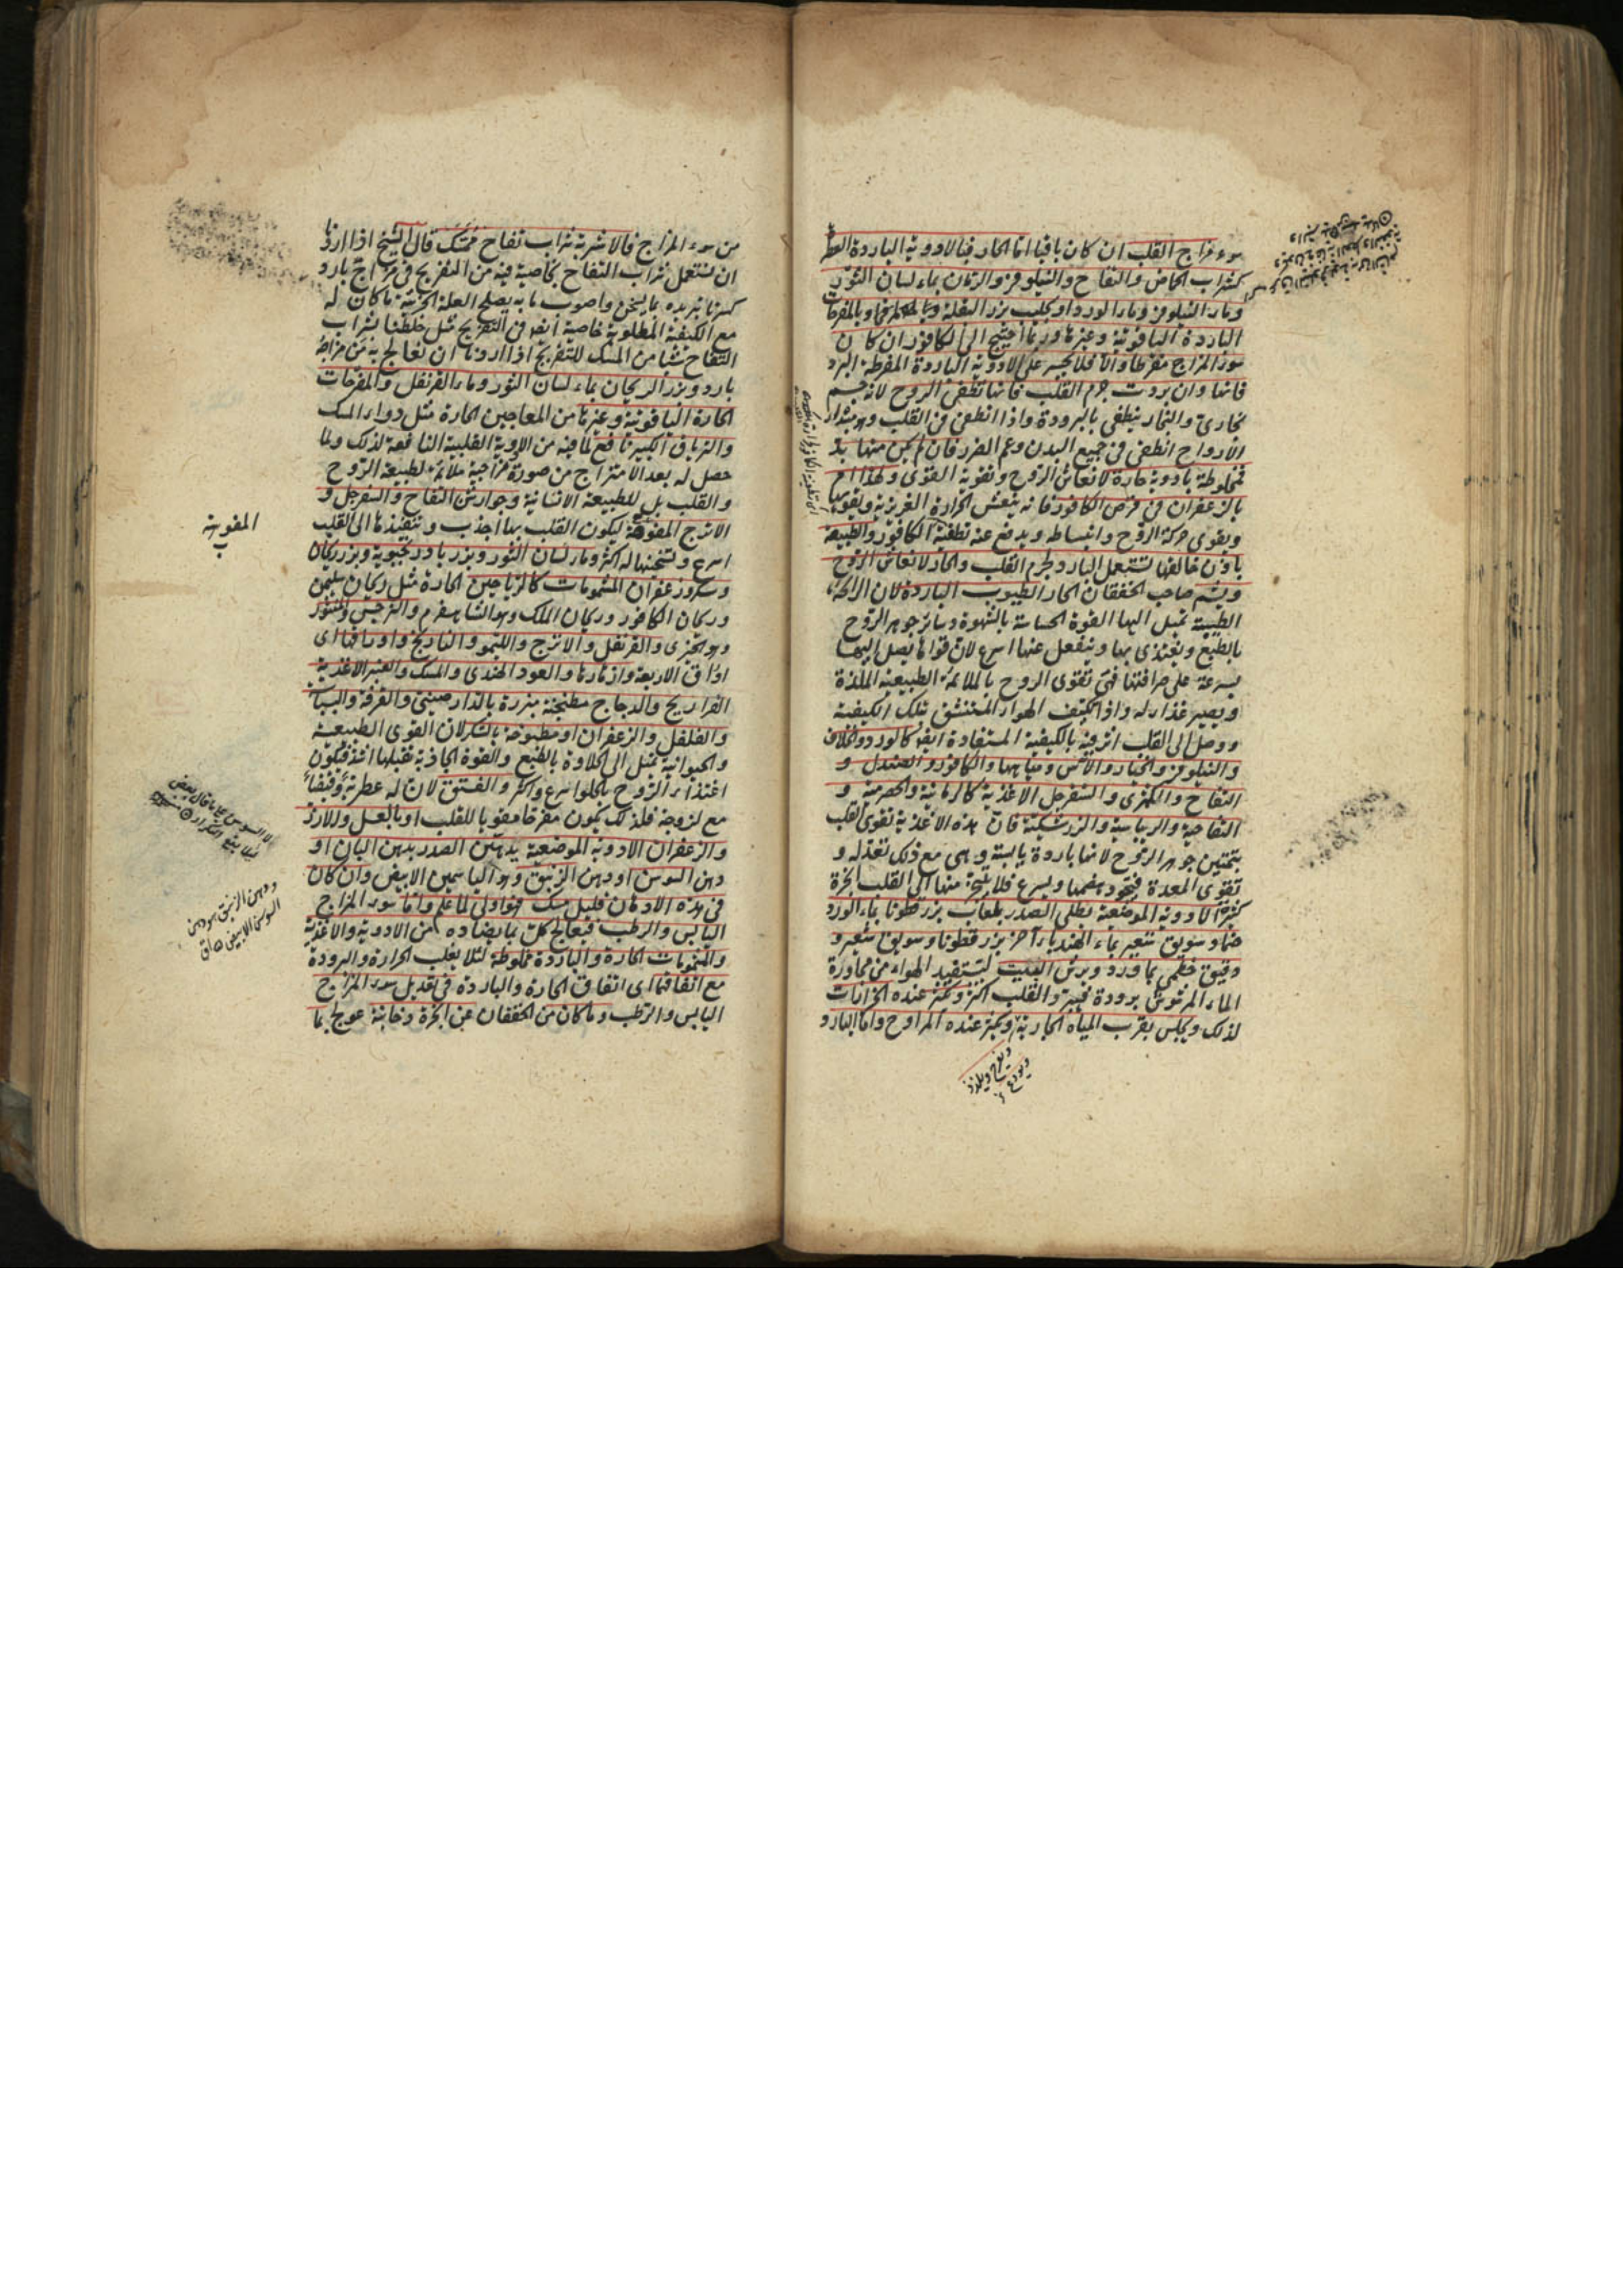 سوء مزاج القلب ان كان باقيا اما الحار فبالادوية الباردة العطرة
كشراب الحماض والتفاح والنيلوفر والرمان بماء لسان الثور
وماء النيلوفر وماء الورد او بحليب بزر البقلة وبالمفرحات
الباردة الياقوتية وغيرها وربما احتيج الى الكافور ان كان
سوء المزاج مفرطا والا فلا يجسر على الادوية الباردة المفرطة البرد
فانها وان بردت جرم القلب فانها تطفئ الروح لانه جسم
بخارى والبخار ينطفى بالبرودة واذا انطفى فى القلب وهو مبتداء
الارواح انطفى فى جميع البدن وعم الضرر فان لم يكن منها بد
فمخلوطة بادوية حارة لانعاش الروح وتقوية القوى ولهذا امر
بالزعفران فى قرص الكافور فانه ينعش الحرارة الغريزية ويقويها
ويقوى حركة الروح وانبساطه ويدفع عنه تطفية الكافور والطبيعة
باذن خالقها تستعمل البارد لجرم القلب والحار لانعاش الروح
ويشم صاحب الخفقان الحار الطيوب الباردة لان الرائحة
الطيبة تميل اليها القوة الحساسة بالشهوة وسائر جوهر الروح
بالطبع ويغتذى بها وينفعل عنها اسرع لان قواها يصل اليها
بسرعة على صرافتها فهى تقوى الروح بالملائمة الطبيعية الملذة
ويصير غذاء له واذا تكيف الهواء المستنشق بتلك الكيفية
ووصل الى القلب اثر فيه بالكيفية المستفادة ايضا كالورد والخلاف
والنيلوفر والخيار والآس ومياهها والكافور والصندل و
التفاح والكمثرى والسفرجل الاغذية كالرمانية والحصرمية و
التفاحية والريباسية والزرشكية فان هذه الاغذية تقوى القلب
بتمتين جوهر الروح لانها باردة يابسة وهى مع ذلك تعدله و
تقوى المعدة فيجود هضمها ويسرع فلا يتبخر منها الى القلب ابخرة
كثيرة الادوية الموضعية يطلى الصدر بلعاب بزرقطونا بماء الورد
ضماد سويق شعير بماء الهندباء آخر بزرقطونا وسويق شعير و
دقيق خطمى بماورد ويرش البيت ليستفيد الهواء من مجاورة
الماء المرشوش برودة فيبرد القلب اكثر وتكثر عنده الخرابات
لذلك ويجلس بقرب المياه الجارية وتكثر عنده المراوح واما البارد
من سوء المزاج فالاشربة شراب تفاح ممسك قال الشيخ اذا اردنا
ان نستعمل شراب التفاح لخاصية فيه من التفريح فى مزاج بارد
كسرنا تبريده بما يسخن واصوب ما به يصلح العلة الجزئية ما كان له
مع الكيفية المطلوبة خاصية ايضا فى التفريح مثل خلطنا بشراب
التفاح شيئا من المسك للتفريح اذا اردنا ان نعالج به من مزاجه
بارد وبزر الريحان بماء لسان الثور وماء القرنفل والمفرحات
الحارة الياقوتية وغيرها من المعاجين الحارة مثل دواء المسك
والترياق الكبير نافع لما فيه من الادوية القلبية النافعة لذلك ولما
حصل له بعد الامتزاج من صورة مزاجية ملائمة لطبيعة الروح
والقلب بل للطبيعة الانسانية وجوارشن التفاح والسفرجل و
الاترج المفوهة ليكون القلب بها اجذب وتنفيذها الى القلب
اسرع وتسخينها له اكثر وماء لسان الثور وبزر بادرنجبوية وبزر ريحان
وسكر وزعفران المشمومات كالرياحين الحارة مثل ريحان سليمن
وريحان الكافور وريحان الملك وهو الشاهسفرم والنرجس والمنثور
وهو الخيرى والقرنفل والاترج والليمو والنارنج واوراقها اى
اوراق الاربعة وازهارها والعود الهندى والمسك والعنبر الاغذية
الفراريج والدجاج مطنجنة مبزرة بالدارصينى والقرفة والبسباسة
والفلفل والزعفران او مطبوخة بالسكر لان القوى الطبيعية
والحيوانية تميل الى الحلاوة بالطبع والقوة الجاذبة تقبلها اشد فيكون
اغتذاء الروح بالحلو اسرع واكثر والفستق لان له عطرية وقبضا
مع لزوجة فلذلك يكون مفرحا مقويا للقلب او بالعسل والارز
والزعفران الادوية الموضعية يدهن الصدر بدهن البان او
دهن السوسن او دهن الزنبق وهو الياسمين الابيض وان كان
فى هذه الادهان قليل مسك فهو اولى لما علم واما سوء المزاج
اليابس والرطب فيعالج كل بما يضاده من الادوية والاغذية
والمشمومات الحارة والباردة مخلوطة لئلا يغلب الحرارة والبرودة
مع اتفاقها اى اتفاق الحارة والباردة فى تعديل سوء المزاج
اليابس والرطب وما كان من الخفقان عن ابخرة دخانية عولج بما
المفوية
ودهن الزنبق هو دهن
السوسن الابيض